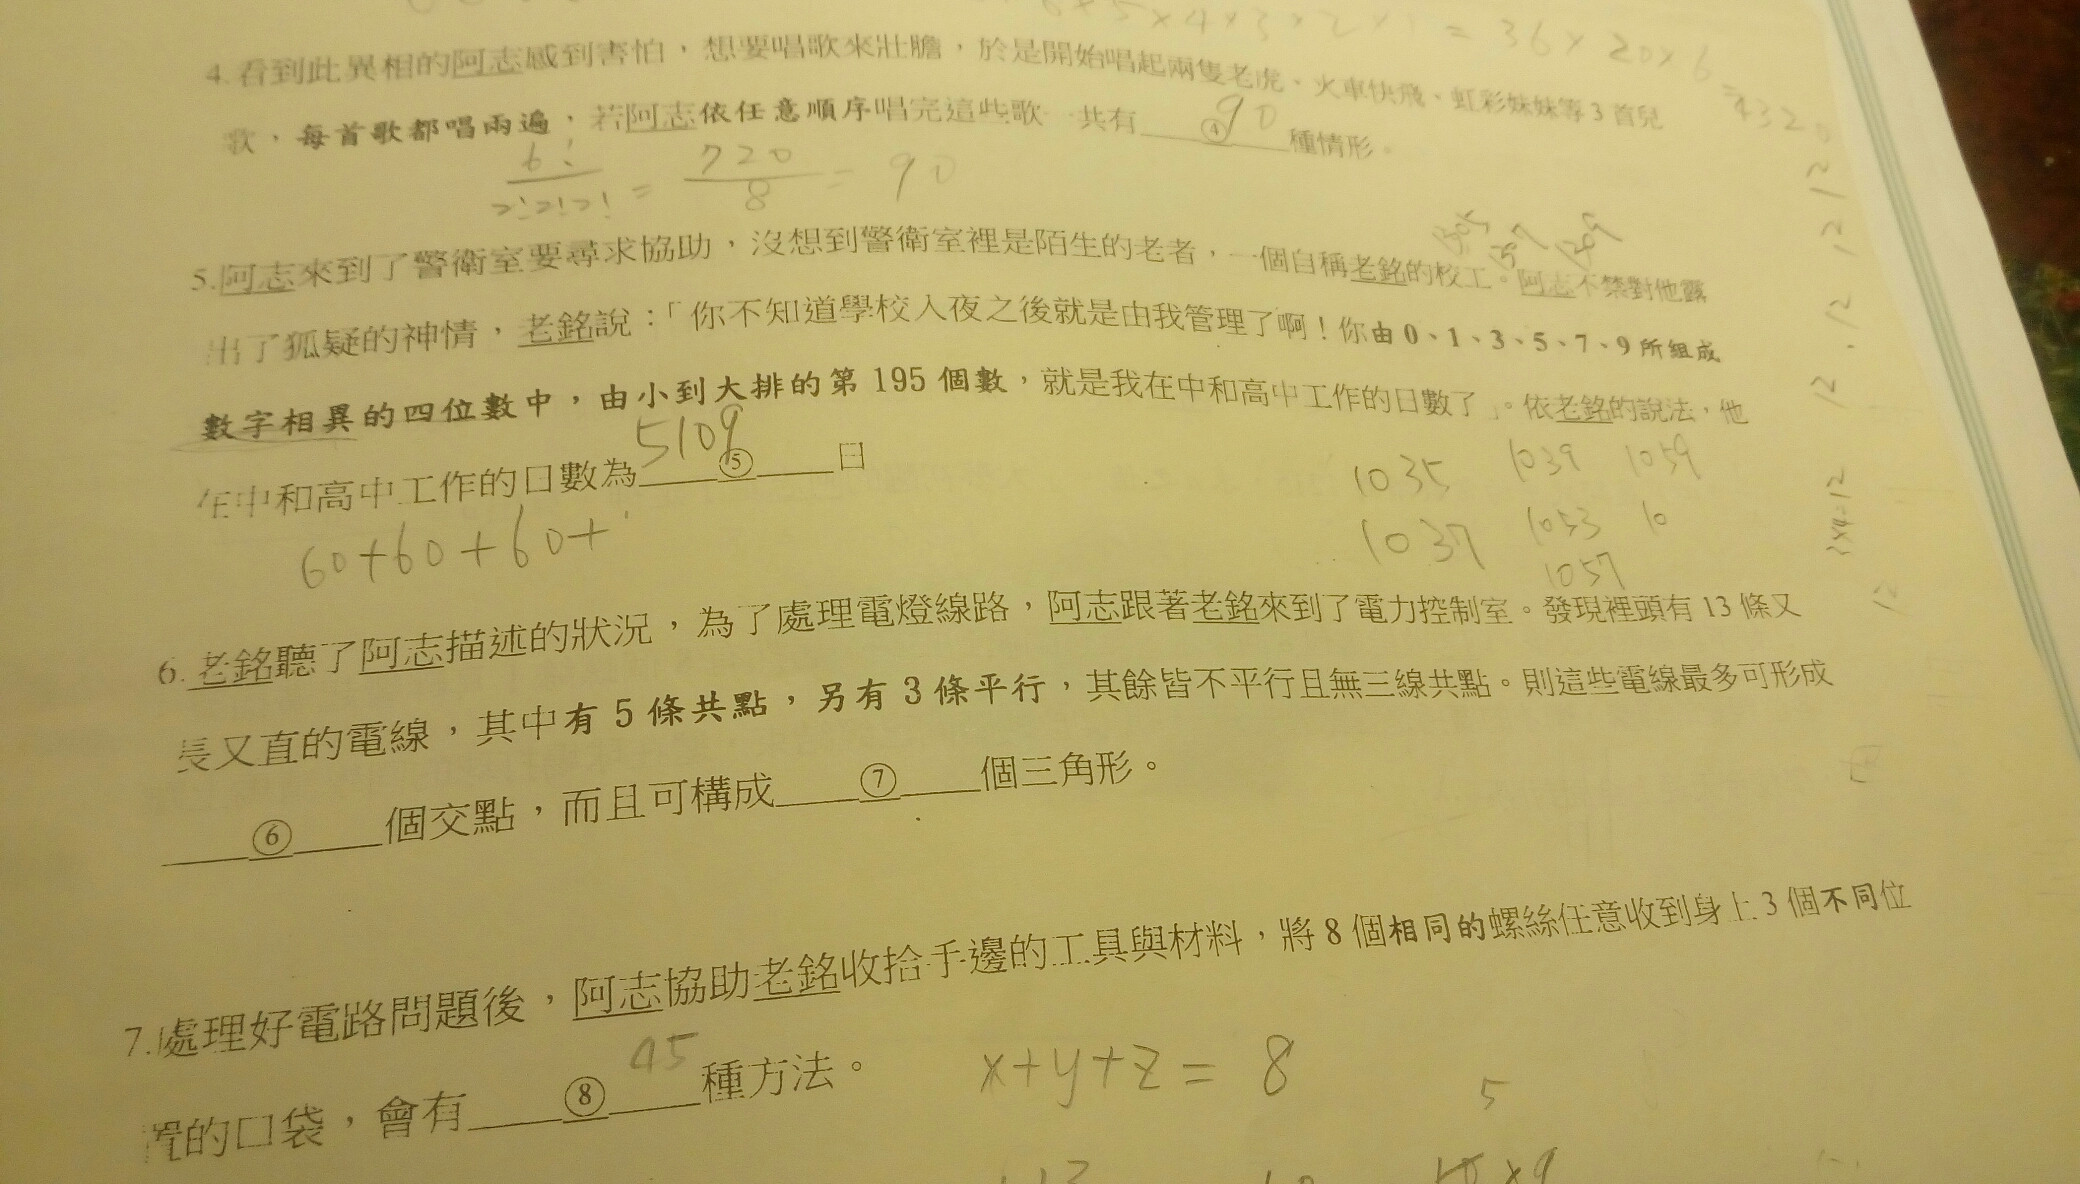 6×5×4×3×2×1 = 36×20×6
=4320
4.看到此異相的阿志感到害怕,想要唱歌來壯膽,於是開始唱起兩隻老虎、火車快飛、虹彩妹妹等3首兒
歌,每首歌都唱兩遍,若阿志依任意順序唱完這些歌 共有④90種情形。
6!/2!2!2! = 720/8 = 90
5.阿志來到了警衛室要尋求協助,沒想到警衛室裡是陌生的老者,一個自稱老銘的校工。阿志不禁對他露
出了狐疑的神情,老銘說:「你不知道學校入夜之後就是由我管理了啊!你由0、1、3、5、7、9所組成
數字相異的四位數中,由小到大排的第195個數,就是我在中和高中工作的日數了」。依老銘的說法,他
在中和高中工作的日數為5109⑤日
1035 1039 1059
60+60+60+
1037 1053 10
1057
6.老銘聽了阿志描述的狀況,為了處理電燈線路,阿志跟著老銘來到了電力控制室。發現裡頭有13條又
長又直的電線,其中有5條共點,另有3條平行,其餘皆不平行且無三線共點。則這些電線最多可形成
⑥個交點,而且可構成⑦個三角形。
7.處理好電路問題後,阿志協助老銘收拾手邊的工具與材料,將8個相同的螺絲任意收到身上3個不同位
置的口袋,會有⑧45種方法。
x+y+z = 8
5
12 12 12 12 3×4=12 12